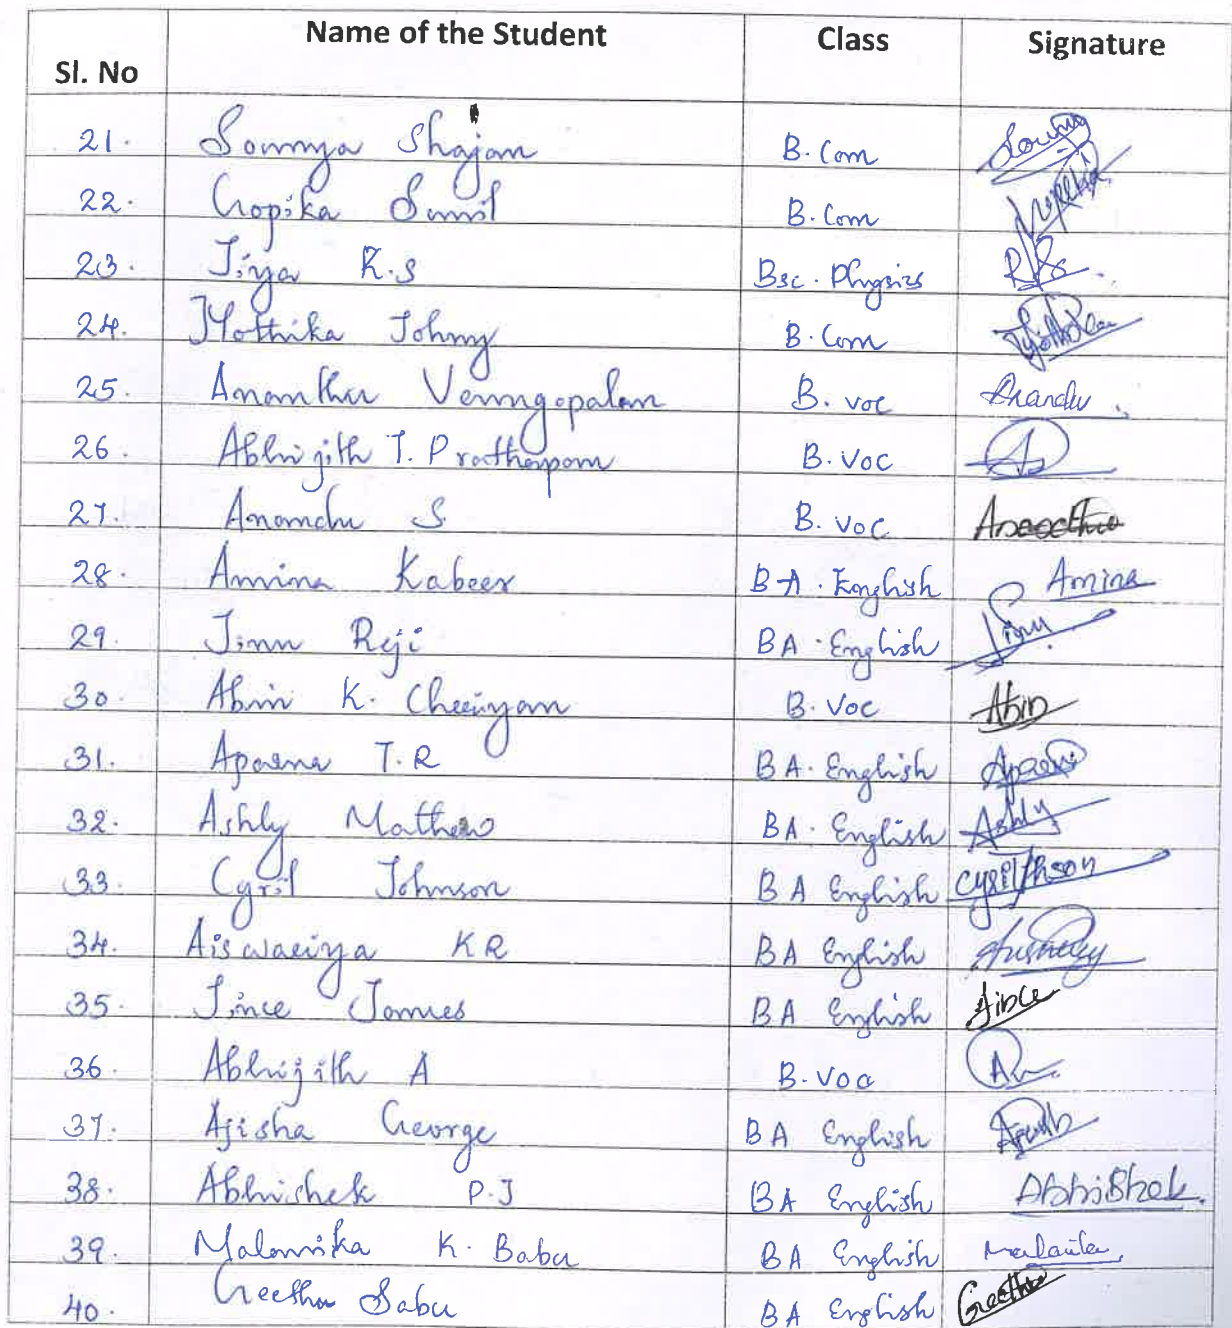 Sl. No Name of the Student Class Signature
21. Soumya Shajan B. Com
22. Gopika Sunil B. Com
23. Jiya K.S Bsc. Physics
24. Jyothika Johny B. Com
25. Ananthu Venugopalan B. Voc
26. Abhijith T. Prathapan B. Voc
27. Anandhu S B. Voc
28. Amina Kabeer BA. English Amina
29. Jinu Reji BA. English Jinu
30. Abin K. Cheriyan B. Voc Abin
31. Aparna T.R BA. English
32. Ashly Mathew BA. English Ashly
33. Cyril Johnson BA English
34. Aiswariya KR BA English
35. Jince James BA English Jince
36. Abhijith A B. Voc
37. Ajisha George BA English
38. Abhishek P.J BA English Abhishek
39. Malavika K. Babu BA English
40. Geethu Sabu BA English Geethu